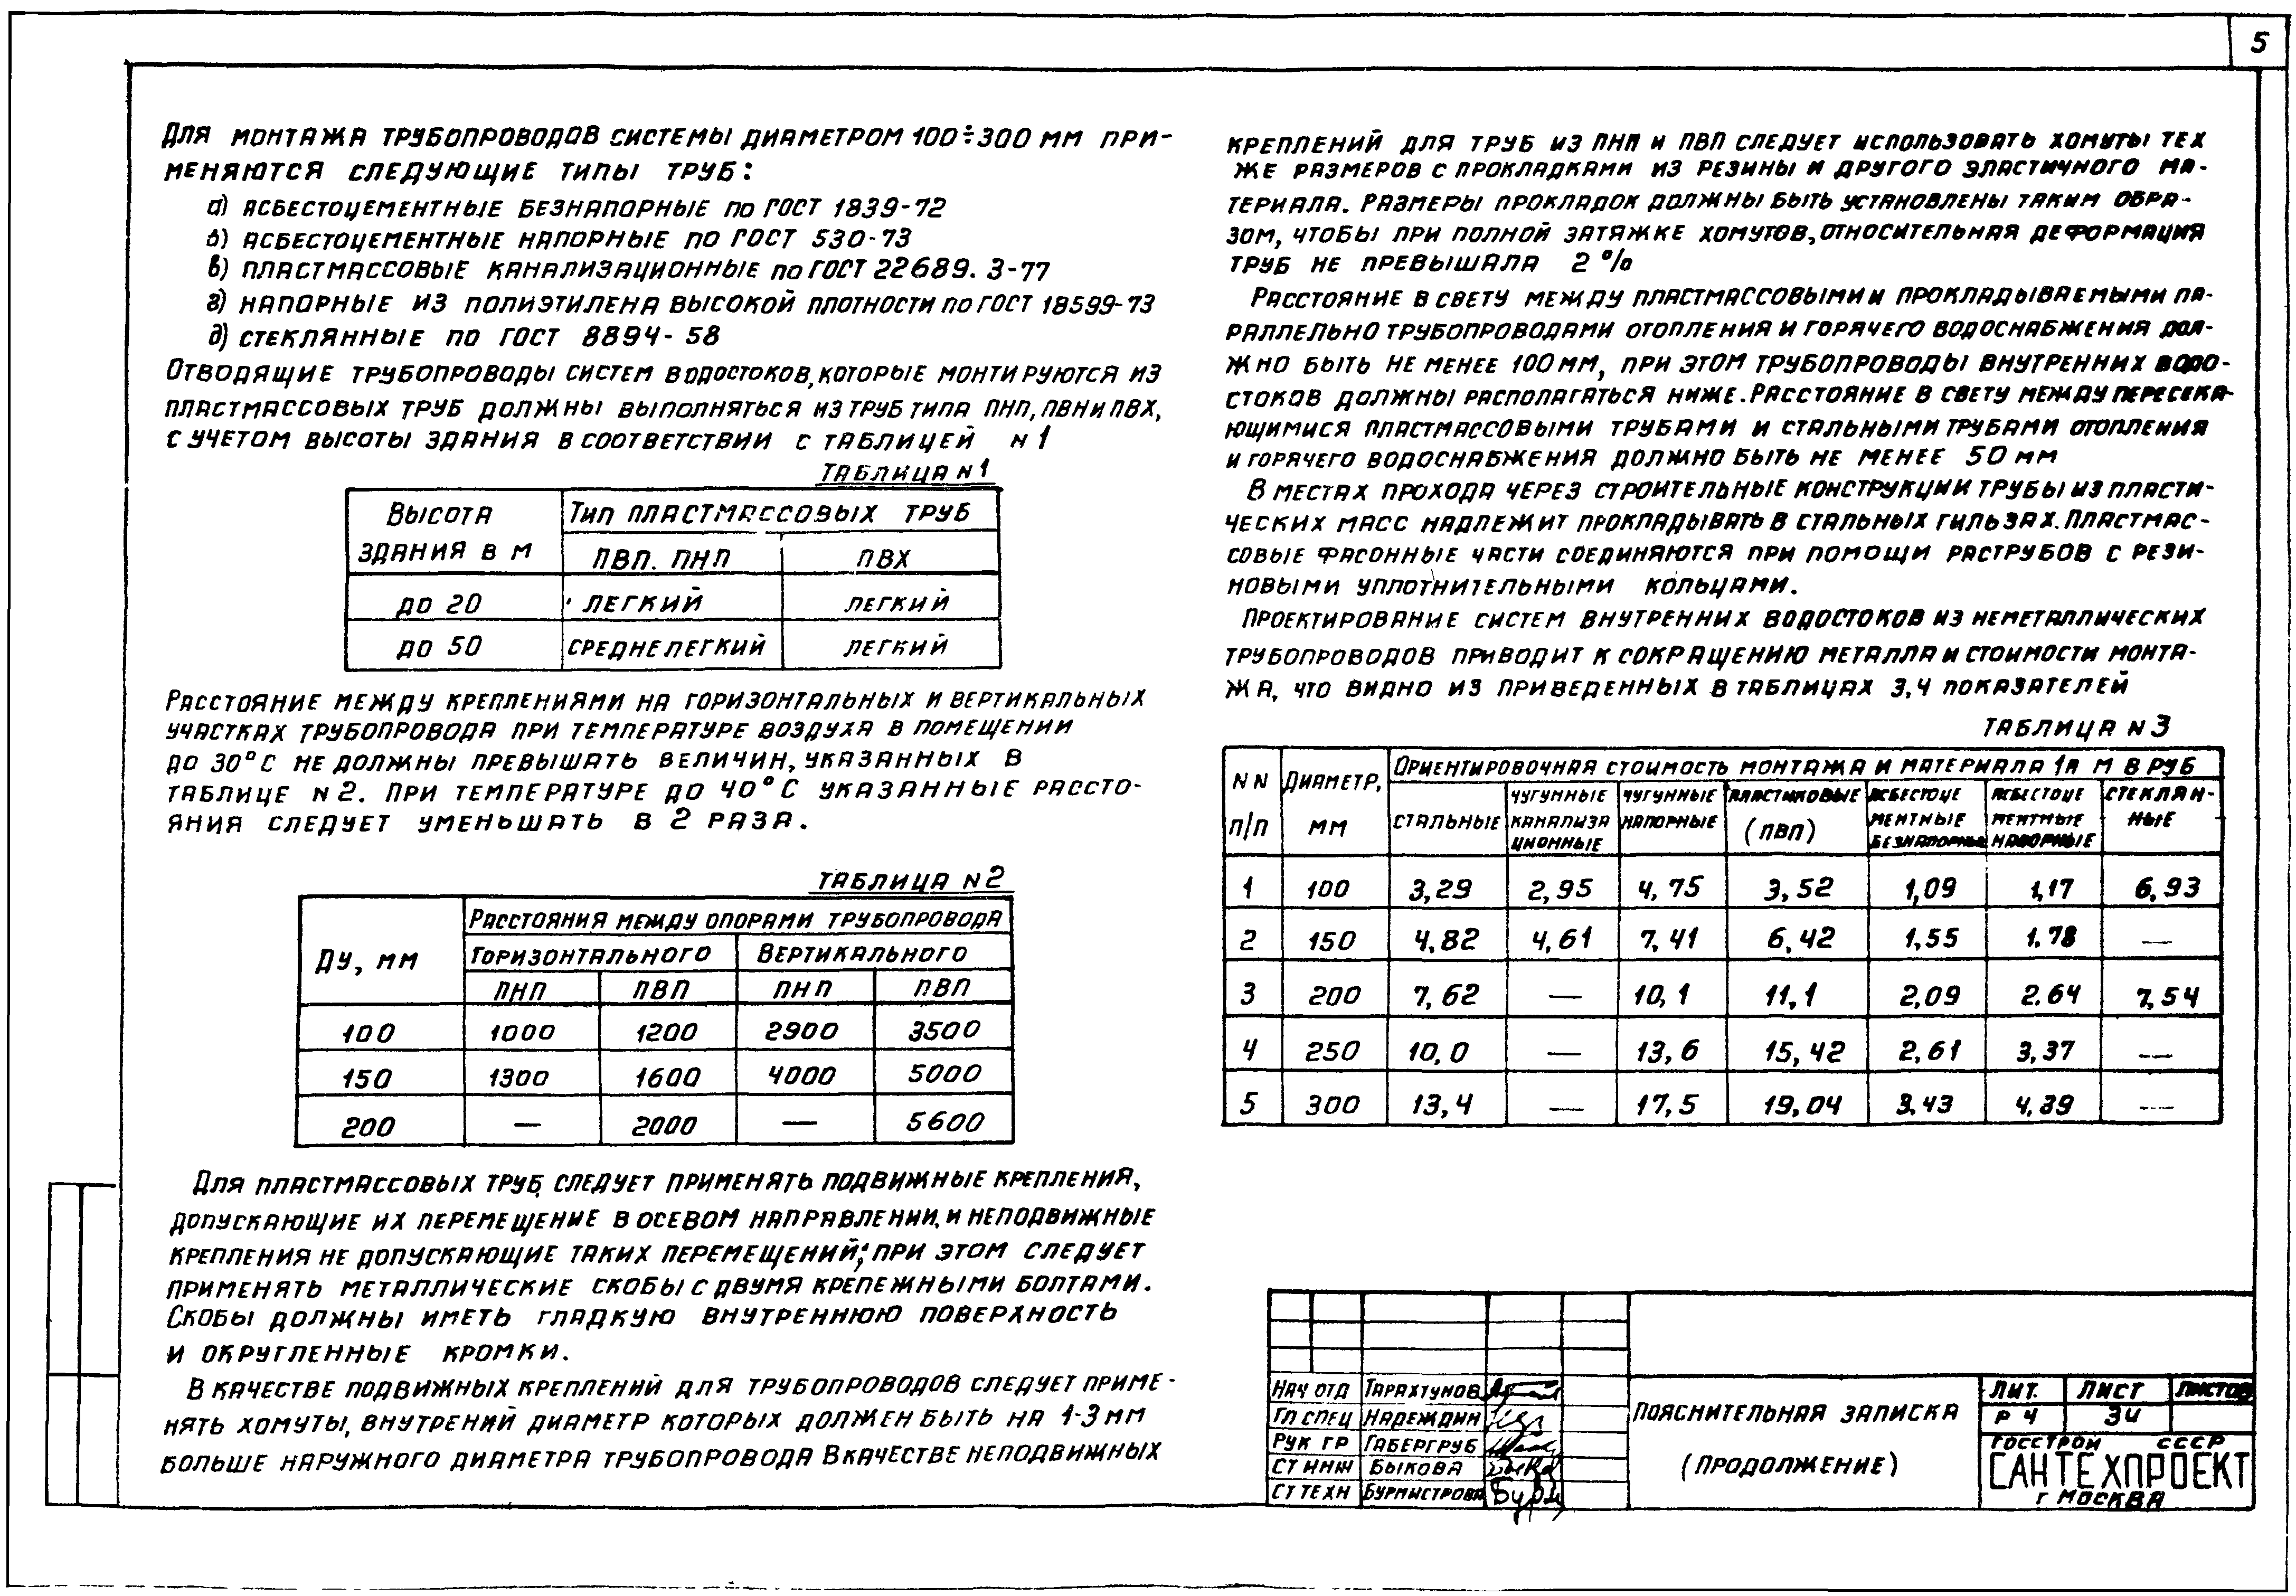 5
Для монтажа трубопроводов системы диаметром 100÷300 мм при-
меняются следующие типы труб:
а) асбестоцементные безнапорные по ГОСТ 1839-72
б) асбестоцементные напорные по ГОСТ 530-73
в) пластмассовые канализационные по ГОСТ 22689.3-77
г) напорные из полиэтилена высокой плотности по ГОСТ 18599-73
д) стеклянные по ГОСТ 8894-58
Отводящие трубопроводы систем водостоков, которые монтируются из
пластмассовых труб должны выполняться из труб типа ПНП, ПВН и ПВХ,
с учетом высоты здания в соответствии с таблицей N 1
Таблица N 1
Высота здания в м | Тип пластмассовых труб
ПВП. ПНП | ПВХ
до 20 | легкий | легкий
до 50 | среднелегкий | легкий
Расстояние между креплениями на горизонтальных и вертикальных
участках трубопровода при температуре воздуха в помещении
до 30°С не должны превышать величин, указанных в
таблице N 2. При температуре до 40°С указанные рассто-
яния следует уменьшать в 2 раза.
Таблица N 2
Ду, мм | Расстояния между опорами трубопровода
Горизонтального | Вертикального
ПНП | ПВП | ПНП | ПВП
100 | 1000 | 1200 | 2900 | 3500
150 | 1300 | 1600 | 4000 | 5000
200 | — | 2000 | — | 5600
Для пластмассовых труб следует применять подвижные крепления,
допускающие их перемещение в осевом направлении, и неподвижные
крепления не допускающие таких перемещений; при этом следует
применять металлические скобы с двумя крепежными болтами.
Скобы должны иметь гладкую внутреннюю поверхность
и округленные кромки.
В качестве подвижных креплений для трубопроводов следует приме-
нять хомуты, внутрений диаметр которых должен быть на 1-3 мм
больше наружного диаметра трубопровода В качестве неподвижных
креплений для труб из ПНП и ПВП следует использовать хомуты тех
же размеров с прокладками из резины и другого эластичного ма-
териала. Размеры прокладок должны быть установлены таким обра-
зом, чтобы при полной затяжке хомутов, относительная деформация
труб не превышала 2 %
Расстояние в свету между пластмассовыми и прокладываемыми па-
раллельно трубопроводами отопления и горячего водоснабжения дол-
жно быть не менее 100 мм, при этом трубопроводы внутренних водо-
стоков должны располагаться ниже. Расстояние в свету между пересека-
ющимися пластмассовыми трубами и стальными трубами отопления
и горячего водоснабжения должно быть не менее 50 мм
В местах прохода через строительные конструкции трубы из пласти-
ческих масс надлежит прокладывать в стальных гильзах. Пластмас-
совые фасонные части соединяются при помощи раструбов с рези-
новыми уплотнительными кольцами.
Проектирование систем внутренних водостоков из неметаллических
трубопроводов приводит к сокращению металла и стоимости монта-
жа, что видно из приведенных в таблицах 3,4 показателей
Таблица N 3
NN п/п | Диаметр, мм | Ориентировочная стоимость монтажа и материала 1 п м в руб
стальные | чугунные канализационные | чугунные напорные | пластиковые (ПВП) | асбестоцементные безнапорные | асбестоцементные напорные | стеклян-ные
1 | 100 | 3,29 | 2,95 | 4,75 | 3,52 | 1,09 | 1,17 | 6,93
2 | 150 | 4,82 | 4,61 | 7,41 | 6,42 | 1,55 | 1.78 | —
3 | 200 | 7,62 | — | 10,1 | 11,1 | 2,09 | 2.64 | 7,54
4 | 250 | 10,0 | — | 13,6 | 15,42 | 2,61 | 3,37 | —
5 | 300 | 13,4 | — | 17,5 | 19,04 | 3,43 | 4,39 | —
Нач отд Тарахтунов
Гл спец Надеждин
Рук гр Габергруб
Ст инж Быкова
Ст техн Бурмистрова
Пояснительная записка
(продолжение)
Лит. Лист Листов
Р Ч 3и
Госстрой СССР
САНТЕХПРОЕКТ
г Москва